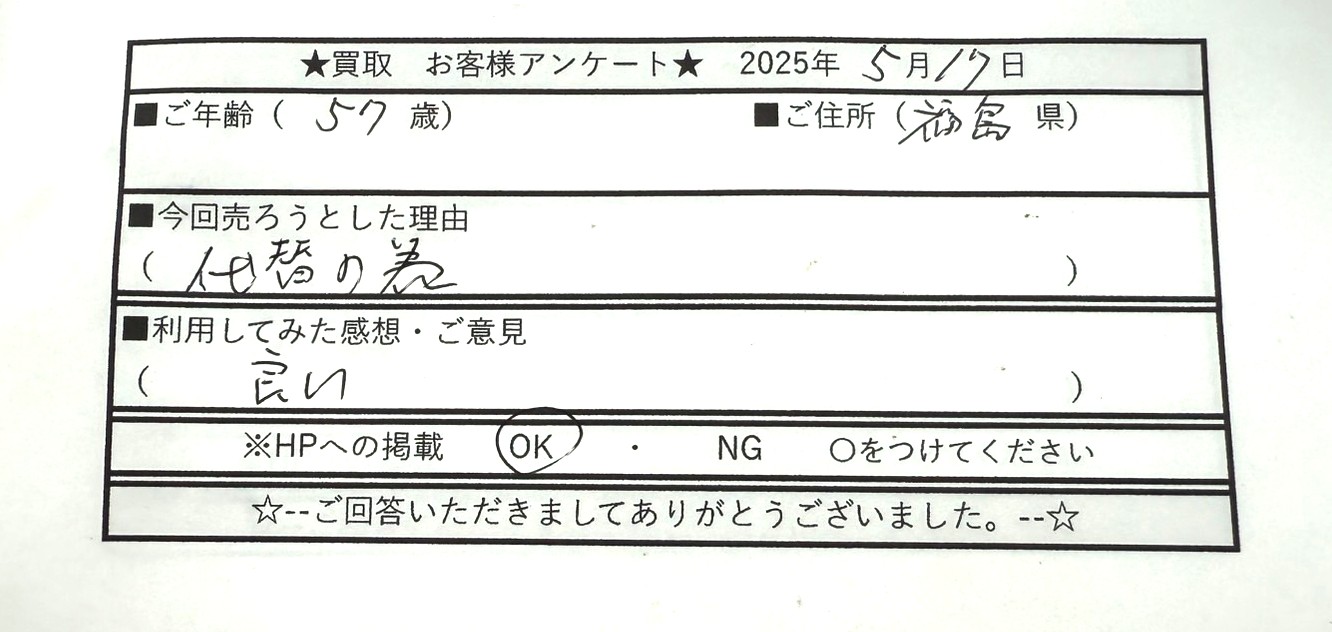 ★買取 お客様アンケート★ 2025年 5月17日
■ご年齢( 57 歳) ■ご住所(福島 県)
■今回売ろうとした理由
( 代替の為 )
■利用してみた感想・ご意見
( 良い )
※HPへの掲載 OK ・ NG 〇をつけてください
☆--ご回答いただきましてありがとうございました。--☆